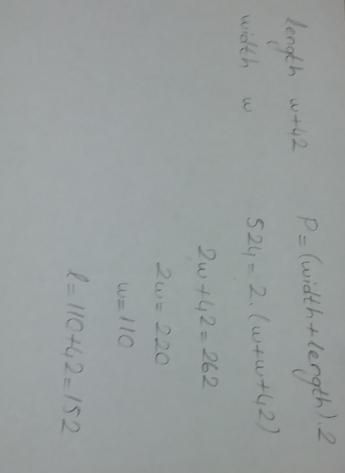 length w+42
width w
P=(width+length).2
524=2.(w+w+42)
2w+42=262
2w=220
w=110
l=110+42=152